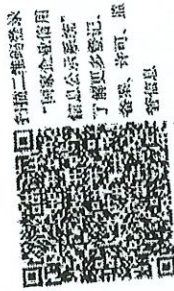 扫描二维码登录
“国家企业信用
信息公示系统”
了解更多登记、
备案、许可、监
管信息